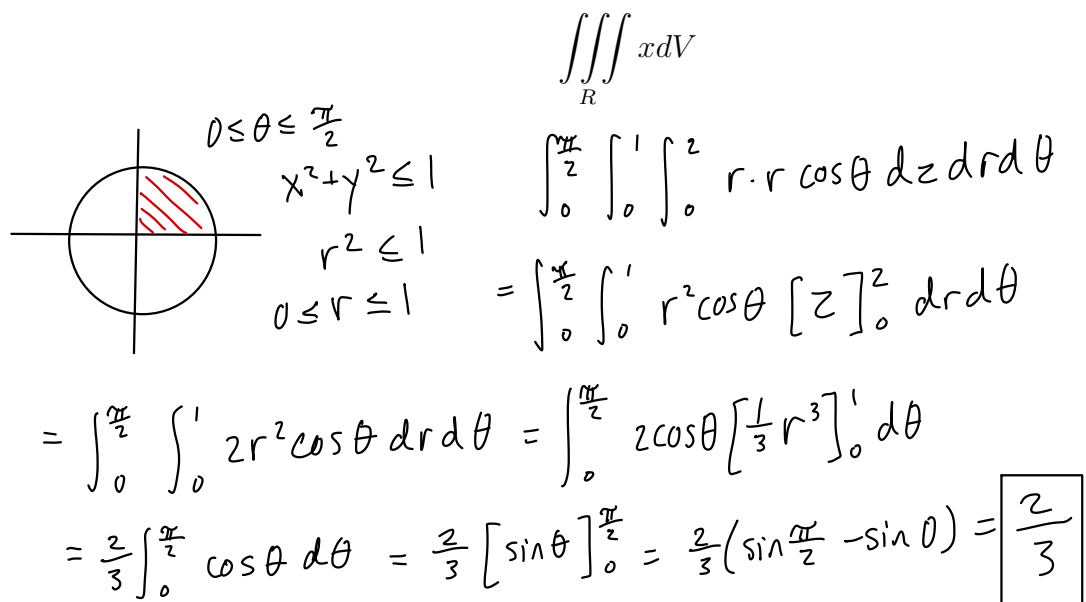 ∭_R x dV
0 ≤ θ ≤ π/2
x² + y² ≤ 1
r² ≤ 1
0 ≤ r ≤ 1
∫_0^{π/2} ∫_0^1 ∫_0^2 r · r cosθ dz dr dθ
= ∫_0^{π/2} ∫_0^1 r² cosθ [z]_0^2 dr dθ
= ∫_0^{π/2} ∫_0^1 2r² cosθ dr dθ = ∫_0^{π/2} 2cosθ [1/3 r³]_0^1 dθ
= 2/3 ∫_0^{π/2} cosθ dθ = 2/3 [sinθ]_0^{π/2} = 2/3 (sin π/2 - sin 0) = 2/3